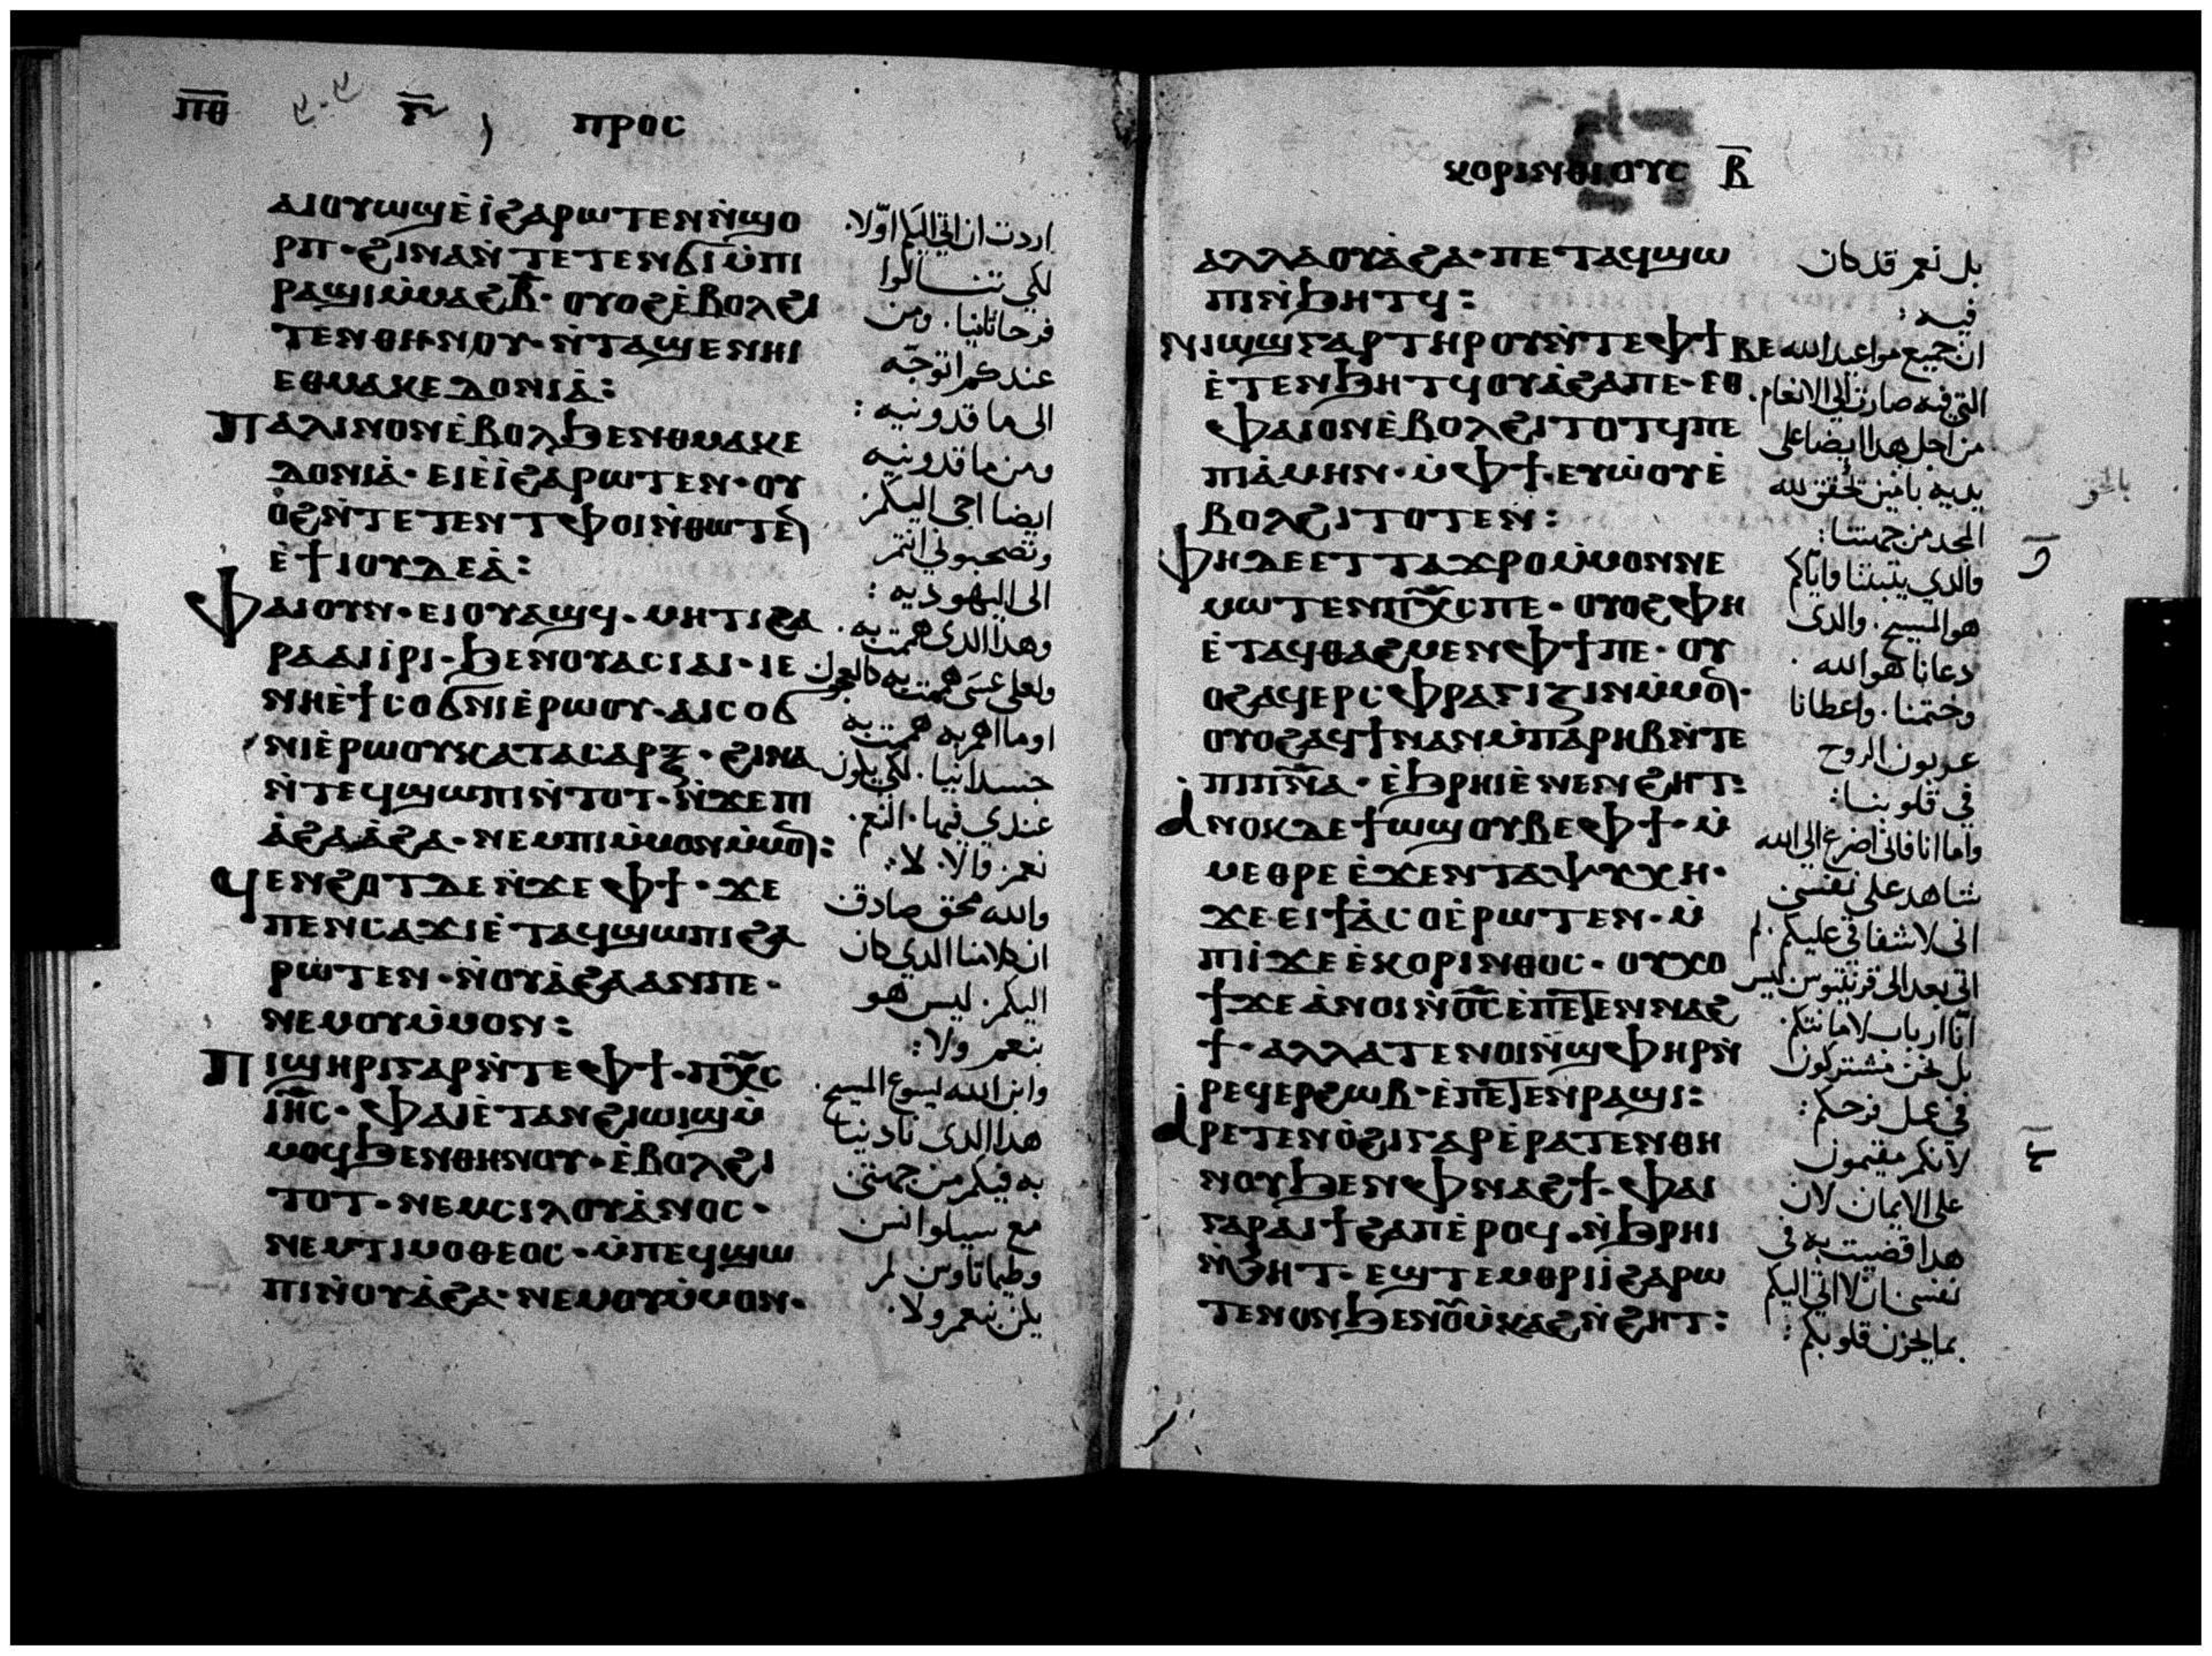 ⲡⲑ ⲅ ⲡⲣⲟⲥ
ⲁⲓⲟⲩⲱϣⲉ̇ⲓ̇ϩⲁⲣⲱⲧⲉⲛⲛ̇ϣⲟ
ⲣⲡ· ϩⲓⲛⲁⲛ̇ⲧⲉⲧⲉⲛϭⲓⲙ̇ⲡⲓ
ⲣⲁϣⲓⲙ̇ⲙⲁϩⲃ̅· ⲟⲩⲟϩⲉ̇ⲃⲟⲗϩⲓ
ⲧⲉⲛⲑⲏⲛⲟⲩ· ⲛ̇ⲧⲁϣⲉⲛⲏⲓ
ⲉⲑⲙⲁⲕⲉⲇⲟⲛⲓⲁ̇:
ⲡⲁⲗⲓⲛⲟⲛⲉ̇ⲃⲟⲗϧⲉⲛⲑⲙⲁⲕⲉ
ⲇⲟⲛⲓⲁ̇· ⲉⲓⲉ̇ⲓ̇ϩⲁⲣⲱⲧⲉⲛ· ⲟⲩ
ⲟ̇ϩⲛ̇ⲧⲉⲧⲉⲛⲧⲫⲟⲓⲛ̇ⲑⲱⲧⲉⲛ
ⲉ̇ϯⲓⲟⲩⲇⲉⲁ̇:
ⲫⲁⲓⲟⲩⲛ· ⲉⲓⲟⲩⲁϣϥ· ⲙⲏⲧⲓϩⲁ
ⲣⲁⲁⲓⲓ̇ⲣⲓ· ϧⲉⲛⲟⲩⲁⲥⲓⲁⲓ· ⲓⲉ
ⲛⲏⲉ̇ϯⲥⲟϭⲛⲓⲉ̇ⲣⲱⲟⲩ· ⲁⲓⲥⲟϭ
ⲛⲓⲉ̇ⲣⲱⲟⲩⲕⲁⲧⲁⲥⲁⲣⲝ· ϩⲓⲛⲁ
ⲛ̇ⲧⲉϥϣⲱⲡⲓⲛ̇ⲧⲟⲧ· ⲛ̇ϫⲉⲡⲓ
ⲁ̇ϩⲁⲁ̇ϩⲁ· ⲛⲉⲙⲡⲓⲙ̇ⲙⲟⲛⲙ̇ⲙⲟⲛ:
ϥⲉⲛϩⲟⲧⲇⲉⲛ̇ϫⲉⲫϯ· ϫⲉ
ⲡⲉⲛⲥⲁϫⲓⲉ̇ⲧⲁϥϣⲱⲡⲓϩⲁ
ⲣⲱⲧⲉⲛ· ⲛ̇ⲟⲩⲁ̇ϩⲁⲁⲛⲡⲉ·
ⲛⲉⲙⲟⲩⲙ̇ⲙⲟⲛ:
ⲡⲓϣⲏⲣⲓⲅⲁⲣⲛ̇ⲧⲉⲫϯ· ⲡⲭ̅ⲥ
ⲓⲏ̅ⲥ· ⲫⲁⲓⲉ̇ⲧⲁⲛϩⲓⲱⲓϣⲙ̇
ⲙⲟϥϧⲉⲛⲑⲏⲛⲟⲩ· ⲉ̇ⲃⲟⲗϩⲓ
ⲧⲟⲧ· ⲛⲉⲙⲥⲓⲗⲟⲩⲁ̇ⲛⲟⲥ·
ⲛⲉⲙⲧⲓⲙⲟⲑⲉⲟⲥ· ⲙ̇ⲡⲉϥϣⲱ
ⲡⲓⲛ̇ⲟⲩⲁ̇ϩⲁ· ⲛⲉⲙⲟⲩⲙ̇ⲙⲟⲛ·
اردت ان اتي اليكم اوّلا·
لكي تنسالوا
فرحا ثانيا· ومن
عندكم اتوجّه
الى ماقدونيه:
ومن ماقدونيه
ايضا اجى اليكم·
وتصحبوني انتم
الى اليهوديه:
وهذا الذى هممت به·
ولعلى عسى هممت به كالعجول
اوما اهم به هممت به
جسدانيا· لكي يكون
عندي فيها· النعم·
نعم· والا· لا:
والله محق صادق
ان كلامنا الدي كان
اليكم· ليس هو
بنعم ولا:
وابن الله ليسوع المسيح·
هدا الدى نادينا
به فيكم من جهتى
مع سيلوانس
وطيماتاوس لم
يكن بنعم ولا·
ⲕⲟⲣⲓⲛⲑⲓⲟⲩⲥ ⲃ̅
ⲁⲗⲗⲁⲟⲩⲁ̇ϩⲁ· ⲡⲉⲧⲁϥϣⲱ
ⲡⲓⲛ̇ϧⲏⲧϥ:
ⲛⲓⲱϣⲅⲁⲣⲧⲏⲣⲟⲩⲛ̇ⲧⲉⲫϯ
ⲉ̇ⲧⲉⲛϧⲏⲧϥⲟⲩⲁ̇ϩⲁⲡⲉ· ⲉⲑ
ⲃⲉ
ⲫⲁⲓⲟⲛⲉ̇ⲃⲟⲗϩⲓⲧⲟⲧϥⲡⲉ
ⲡⲓⲁ̇ⲙⲏⲛ· ⲙ̇ⲫϯ· ⲉⲩⲱ̇ⲟⲩⲉ̇
ⲃⲟⲗϩⲓⲧⲟⲧⲉⲛ:
ⲫⲏⲇⲉⲉⲧⲧⲁϫⲣⲟⲙ̇ⲙⲟⲛⲛⲉ
ⲙⲱⲧⲉⲛⲡⲭ̅ⲥⲡⲉ· ⲟⲩⲟϩⲫⲏ
ⲉ̇ⲧⲁϥⲑⲁϩⲙⲉⲛⲫϯⲡⲉ· ⲟⲩ
ⲟϩⲁϥⲉⲣⲥⲫⲣⲁⲅⲓⲍⲓⲛⲙ̇ⲙⲟⲛ·
ⲟⲩⲟϩⲁϥϯⲛⲁⲛⲙ̇ⲡⲁⲣⲏⲃⲛ̇ⲧⲉ
ⲡⲓⲡ̅ⲛ̅ⲁ· ⲉ̇ϧⲣⲏⲓⲉ̇ⲛⲉⲛϩⲏⲧ:
ⲁⲛⲟⲕⲇⲉϯⲱϣⲟⲩⲃⲉⲫϯ· ⲙ̇
ⲙⲉⲑⲣⲉⲉ̇ϫⲉⲛⲧⲁⲯⲩⲭⲏ·
ϫⲉⲉⲓϯⲁ̇ⲥⲟⲉ̇ⲣⲱⲧⲉⲛ· ⲙ̇
ⲡⲓⲓ̇ϫⲉⲉ̇ⲕⲟⲣⲓⲛⲑⲟⲥ· ⲟⲩⲭⲟ
ϯϫⲉⲁ̇ⲛⲟⲓⲛ̇ⲟ̅ⲥ̅ⲉ̇ⲡⲉⲧⲉⲛⲛⲁϩ
ϯ· ⲁⲗⲗⲁⲧⲉⲛⲟⲓⲛ̇ϣⲫⲏⲣⲛ̇
ⲣⲉϥⲉⲣϩⲱⲃ· ⲉ̇ⲡⲉⲧⲉⲛⲣⲁϣⲓ:
ⲁⲣⲉⲧⲉⲛⲟ̇ϩⲓⲅⲁⲣⲉ̇ⲣⲁⲧⲉⲛⲑⲏ
ⲛⲟⲩϧⲉⲛⲫⲛⲁϩϯ· ⲫⲁⲓ
ⲅⲁⲣⲁⲓϯϩⲁⲡⲉ̇ⲣⲟϥ· ⲛ̇ϧⲣⲏⲓ
ⲛ̇ϧⲏⲧ· ⲉϣⲧⲉⲙⲑⲣⲓⲓ̇ϩⲁⲣⲱ
ⲧⲉⲛⲟⲛϧⲉⲛⲟⲩⲙ̇ⲕⲁϩⲛ̇ϩⲏⲧ:
بل نعم قد كان
فيه:
ان جميع مواعيد الله
التي فيه صارت الى الانعام·
من اجل هدا ايضا على
يديه بامين تحقق لله
المجد من جهتنا:
والدي يثبتنا واياكم
هو المسيح· والدى
دعانا هو الله·
وختمنا· واعطانا
عربون الروح
في قلوبنا:
واما انا فانى اضرع الى الله
شاهد على نفسى
انى لاشفاقى عليكم· لم
اتى بعد الى قرنثوس ليس
انّا ارباب لامانتكم·
بل نحن مشتركون
في عمل فرحكم:
لانكم مقيمون
على الايمان لان
هدا قضيت به في
نفسى ان لا اتى اليكم
بما يحزن قلوبكم: